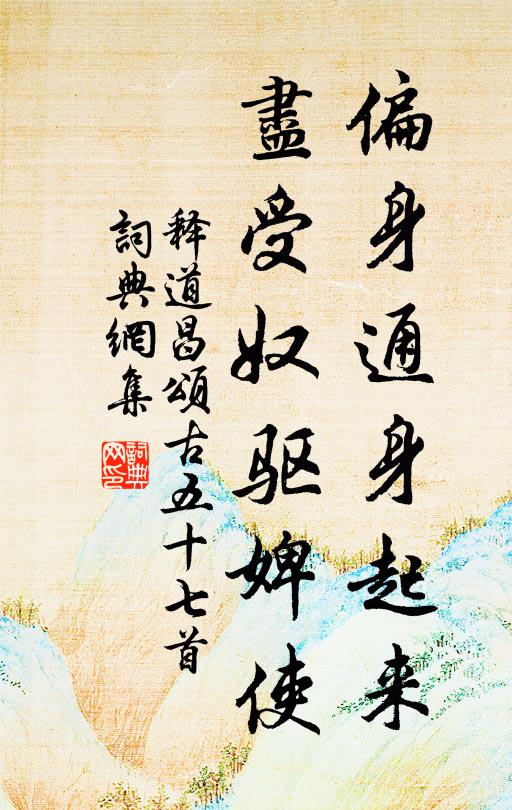 偏身通身起来
盡受奴驱婢使
释道昌頌古五十七首
詞典網集
詞典
网印